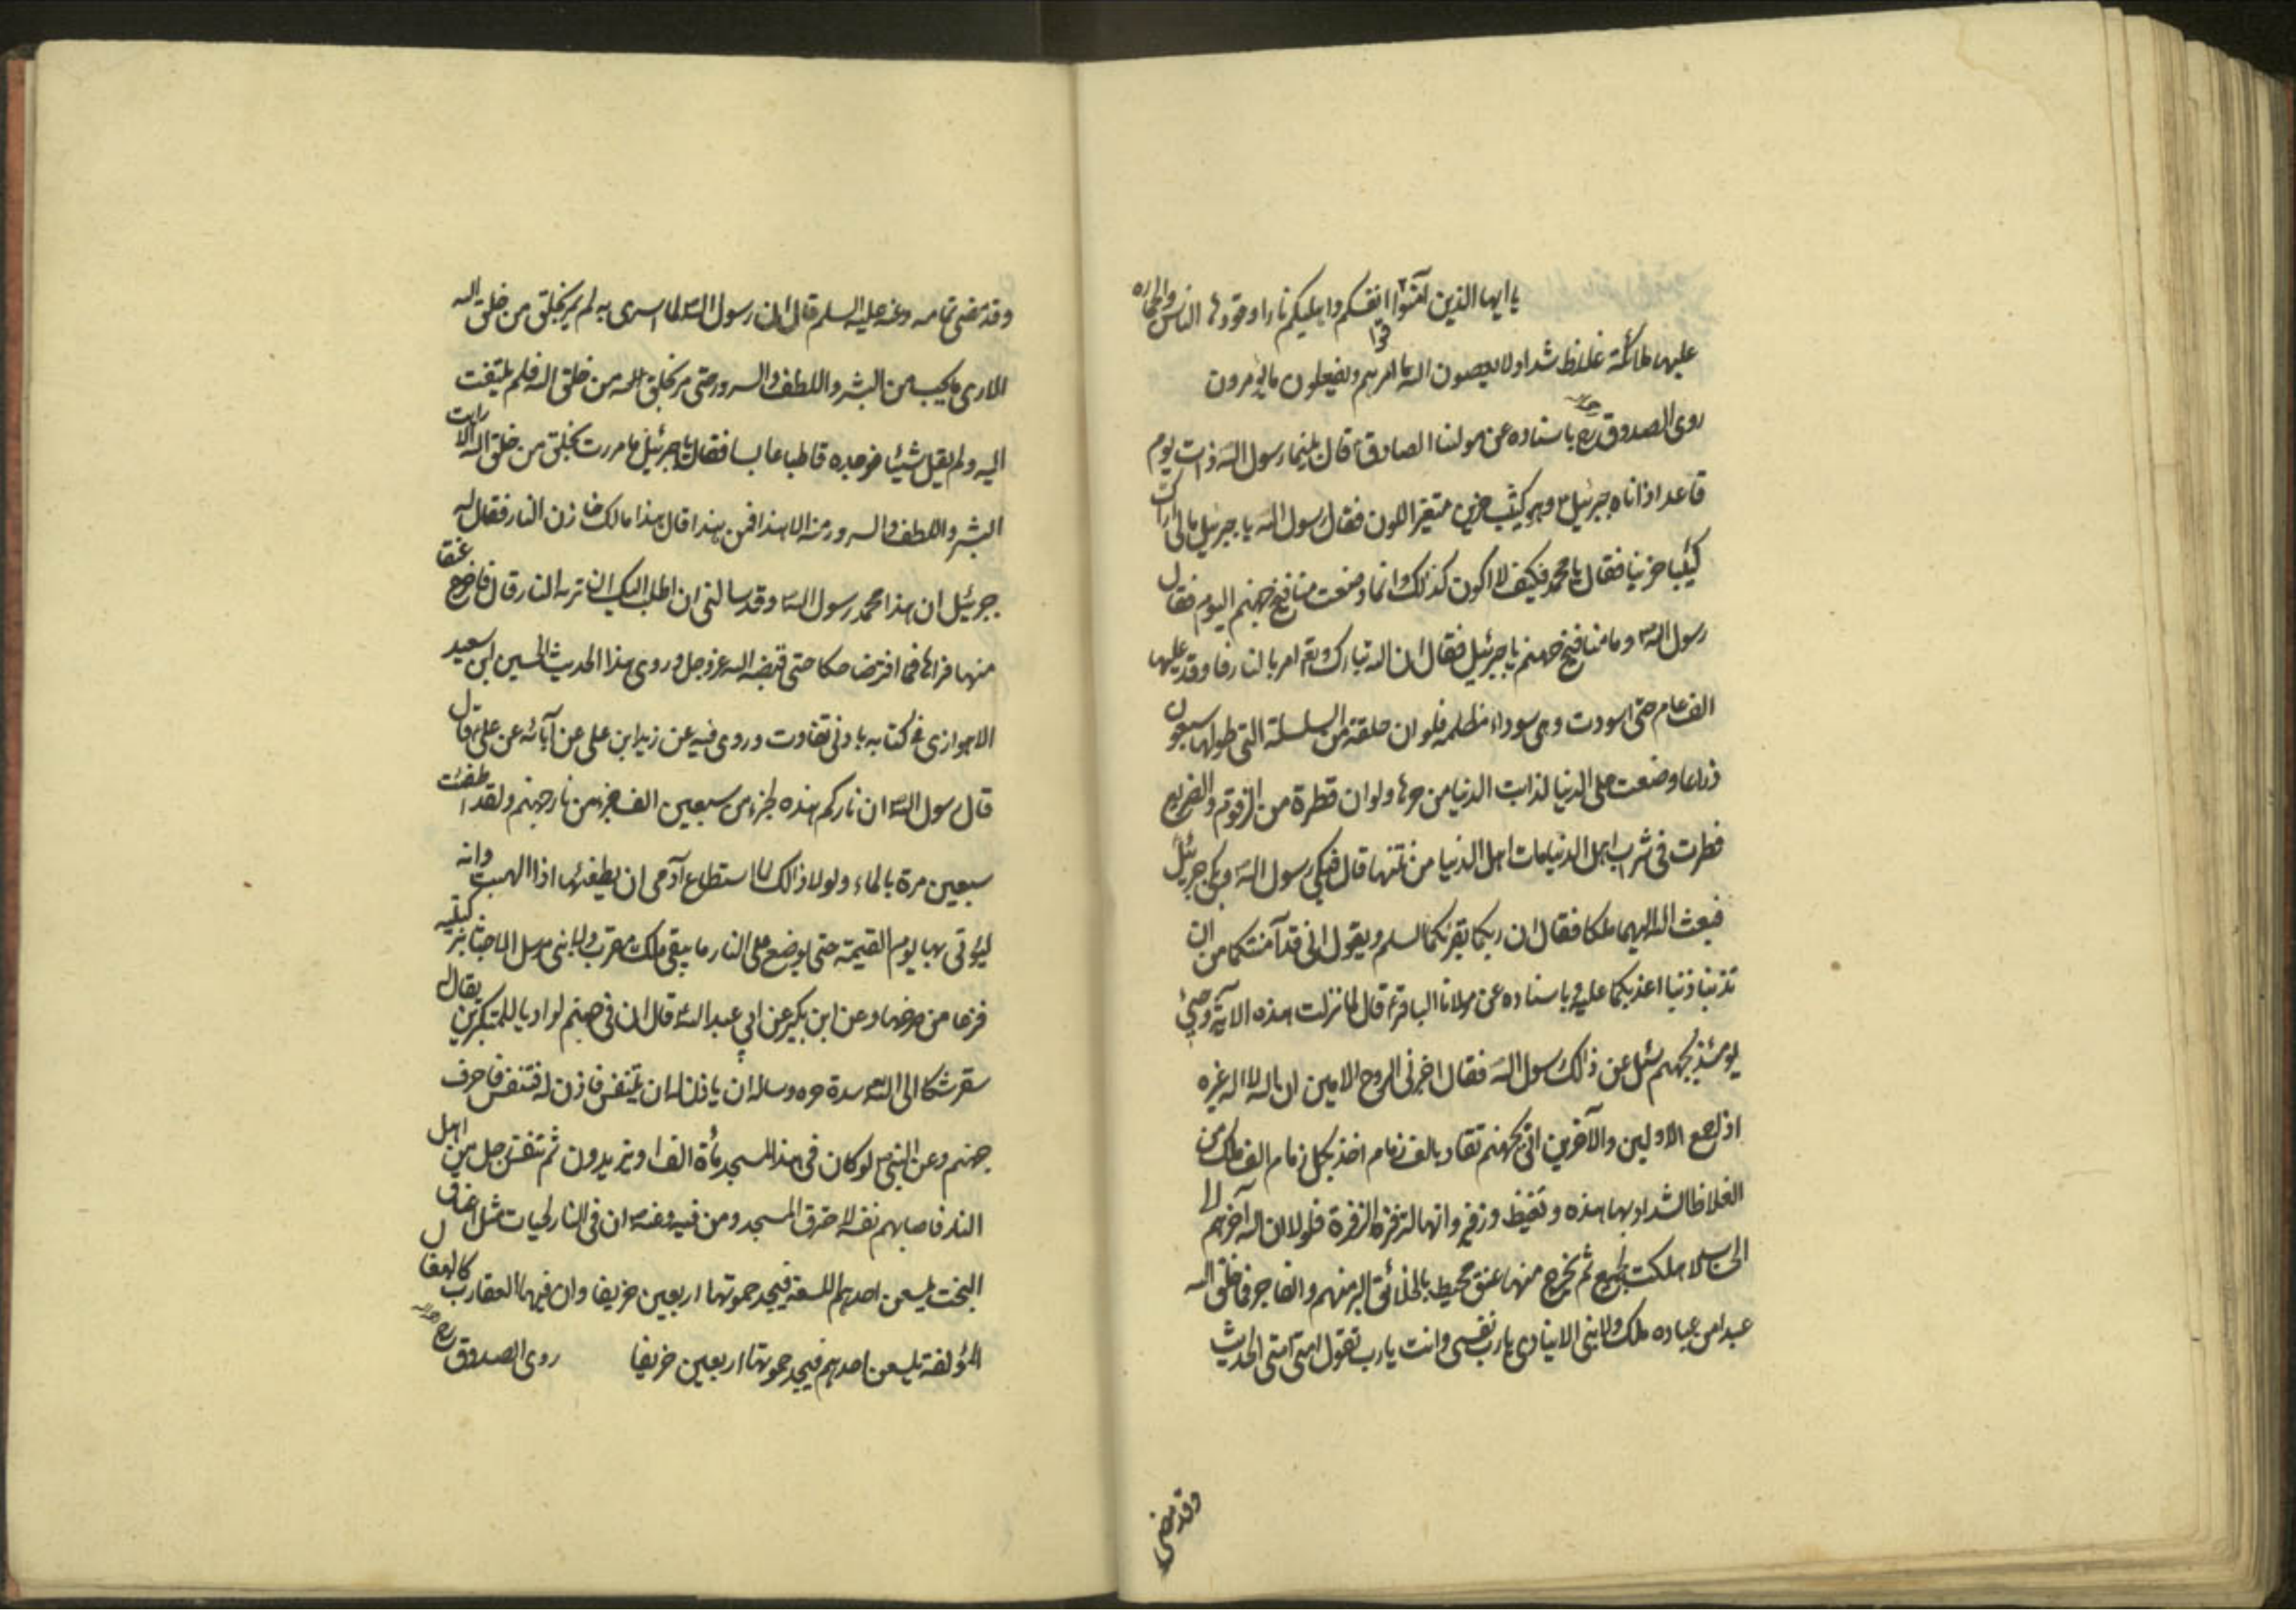 يا ايها الذين آمنوا قوا انفسكم واهليكم نارا وقودها الناس والحجاره
عليها ملائكة غلاظ شداد لا يعصون الله ما امرهم ويفعلون ما يؤمرون
روى الصدوق ره باسناده عن مولنا الصادق ع قال بينما رسول الله ذات يوم
قاعد اذ اتاه جبرئيل ع وهو كئيب حزين متغير اللون فقال رسول الله يا جبرئيل مالى اراك
كئيبا حزينا فقال يا محمد فكيف لا اكون كذلك وانما وضعت منافيخ جهنم اليوم فقال
رسول الله ص وما منافيخ جهنم يا جبرئيل فقال ان الله تبارك وتع امر بالنار فاوقد عليها
الف عام حتى اسودت وهى سوداء مظلمه فلو ان حلقة من السلسلة التى طولها سبعون
ذراعا وضعت على الدنيا لذابت الدنيا من حرها ولو ان قطرة من الزقوم والضريع
قطرت فى شراب اهل الدنيا مات اهل الدنيا من نتنها قال فبكى رسول الله وبكى جبرئيل
فبعث الله اليهما ملكا فقال ان ربكما يقرئكما السلم ويقول انى قد آمنتكما من ان
تذنبا ذنبا اعذبكما عليه وباسناده عن مولانا الباقر ع قال لما نزلت هذه الآية وجئ
يومئذ بجهنم سئل عن ذالك رسول الله فقال اخبرنى الروح الامين ان الله لا اله غيره
اذا جمع الاولين والآخرين اتى بجهنم تقاد بالف زمام اخذ بكل زمام الف ملك من
الغلاظ الشداد لها هده وتغيظ وزفير وانها لتزفر الزفرة فلولا ان الله آخرهم لا
الى الحساب لاهلكت الجميع ثم يخرج منها عنق محيط بالخلائق البر منهم والفاجر فما خلق الله
عبدا من عباده ملك ولا نبى الا ينادى يا رب نفسى وانت يا رب تقول امتى امتى الحديث
وقد مضى
وقد مضى تمامه وعنه عليه السلم قال ان رسول الله ص لما اسرى به لم يمر بخلق من خلق الله
الا راى ما يحب من البشر واللطف والسرور حتى مر بخلق الله من خلق الله فلم يلتفت
اليه ولم يقل شيئا فوجده قاطبا عابسا فقال يا جبرئيل ما مررت بخلق من خلق الله الا رايت
البشر واللطف والسرور منه الا هذا فمن هذا قال هذا مالك خازن النار فقال له
جبرئيل ان هذا محمد رسول الله ص وقد سالنى ان اطلب اليك ان تريه النار قال فاخرج عنقا
منها فرآها فما افتر ضاحكا حتى قبضه الله عز وجل وروى هذا الحديث الحسين ابن سعيد
الاهوازى فى كتابه بادنى تفاوت وروى فيه عن زيد ابن على عن آبائه عن على ع قال
قال رسول الله ص ان ناركم هذه لجزء من سبعين الف جزء من نار جهنم ولقد اطفئت
سبعين مرة بالماء ولولا ذالك لما استطاع آدمى ان يطفئها اذا التهبت وانه
ليؤتى بها يوم القيمة حتى توضع على النار ما يبقى ملك مقرب ولا نبى مرسل الا جثا بركبتيه
فزعا من صرختها وعن ابن بكير عن ابى عبد الله ع قال ان فى جهنم لواديا للمتكبرين يقال له
سقر شكا الى الله ص شدة حره وساله ان ياذن له ان يتنفس فاذن له فتنفس فاحرق
جهنم وعن النبى ص لو كان فى هذا المسجد مأة الف او يزيدون ثم تنفس رجل من اهل
النار فاصابهم نفسه لاحترق المسجد ومن فيه وعنه ص ان فى النار لحيات مثل اعناق
البخت يلسعن احدهم اللسعة فيجد حموتها اربعين خريفا وان فيها لعقارب كالبغال
المؤلفة يلسعن احدهم فيجد حموتها اربعين خريفا روى الصدوق ره